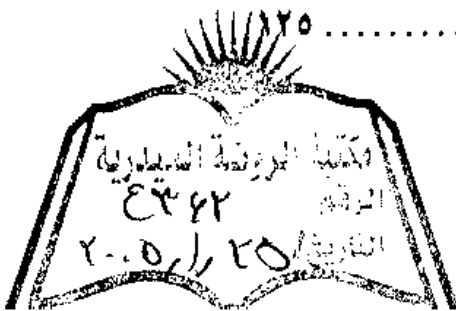 ١٢٥ ..........
مكتبة الروضة الحيدرية
الرقم ٤٣٦٢
التاريخ ٢٥/١/٢٠٠٥